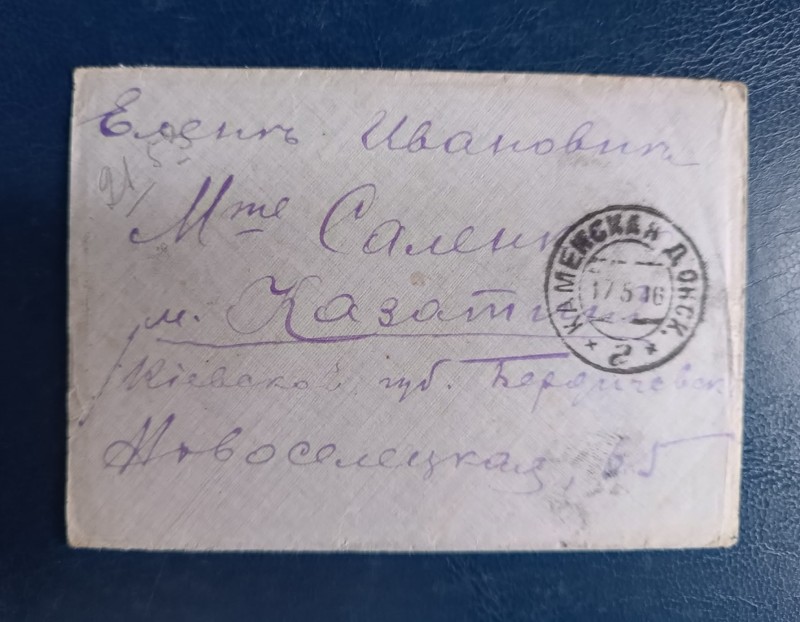 Еленѣ Ивановнѣ
Mme Саленко
м. Казатинъ
Кіевской губ. Бердичевск
Новоселецкая, 65
КАМЕНСКАЯ ДОНСК.
17 5 16
* 2 *